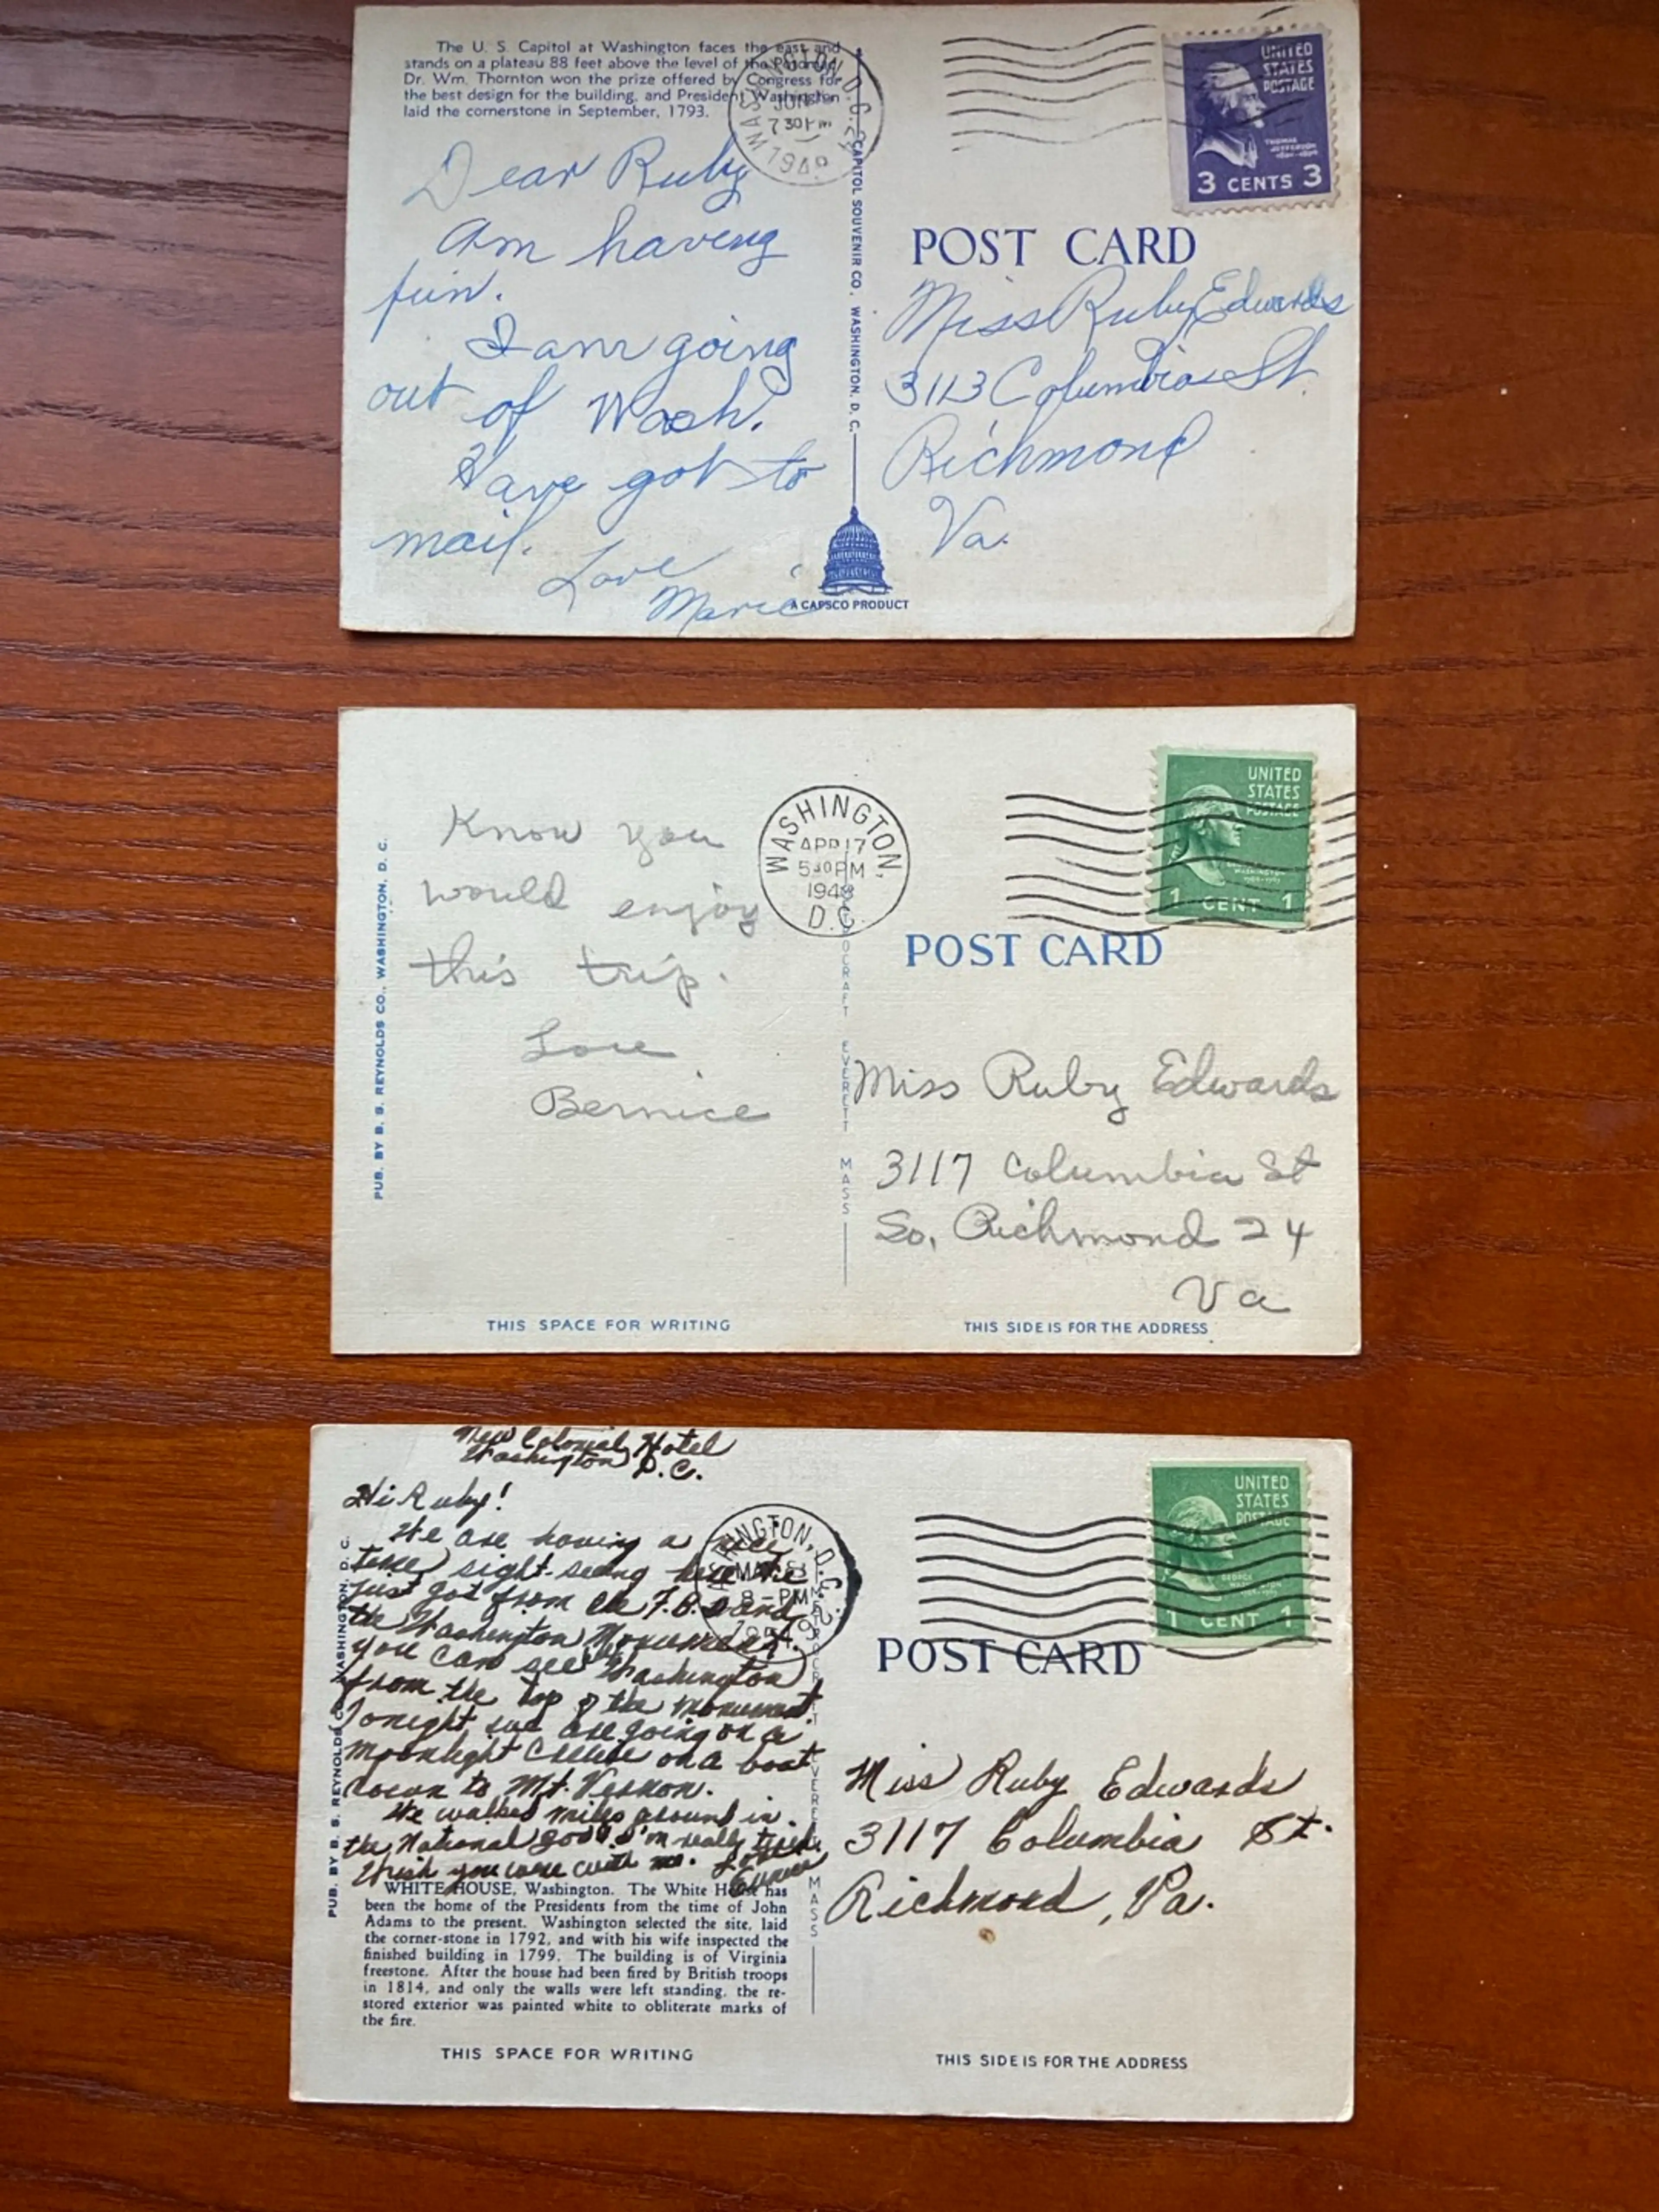 The U. S. Capitol at Washington faces the east and
stands on a plateau 88 feet above the level of the Potomac.
Dr. Wm. Thornton won the prize offered by Congress for
the best design for the building, and President Washington
laid the cornerstone in September, 1793.
Dear Ruby
Am having
fun.
I am going
out of Wash.
Have got to
mail.
Love
Marie
WASHINGTON, D.C.
JUN
7 30 PM
CAPITOL SOUVENIR CO., WASHINGTON, D. C.
A CAPSCO PRODUCT
UNITED
STATES
POSTAGE
THOMAS
JEFFERSON
3 CENTS 3
POST CARD
Miss Ruby Edwards
3113 Columbia St.
Richmond
Va.
PUB. BY B. S. REYNOLDS CO., WASHINGTON, D. C.
Know you
would enjoy
this trip.
Love
Bernice
WASHINGTON,
APR 17
5 30 PM
1948
D.C.
EVERETT MASS
UNITED
STATES
POSTAGE
WASHINGTON
1 CENT 1
POST CARD
Miss Ruby Edwards
3117 Columbia St
So. Richmond 24
Va
THIS SPACE FOR WRITING
THIS SIDE IS FOR THE ADDRESS
New Colonial Hotel
Washington D.C.
Hi Ruby!
We are having a nice
time sight-seeing here. We
just got from the F.B.I. and
the Washington Monument.
You can see Washington
from the top of the monument.
Tonight we are going on a
moonlight cruise on a boat
down to Mt. Vernon.
We walked miles around in
the National Zoo & I'm really tired.
Wish you were with me.
PUB. BY B. S. REYNOLDS CO., WASHINGTON, D. C.
WHITE HOUSE, Washington. The White House has
been the home of the Presidents from the time of John
Adams to the present. Washington selected the site, laid
the corner-stone in 1792, and with his wife inspected the
finished building in 1799. The building is of Virginia
freestone. After the house had been fired by British troops
in 1814, and only the walls were left standing, the re-
stored exterior was painted white to obliterate marks of
the fire.
THIS SPACE FOR WRITING
8 - PM
EVERETT MASS
UNITED
STATES
POSTAGE
GEORGE
WASHINGTON
1 CENT 1
POST CARD
Miss Ruby Edwards
3117 Columbia St.
Richmond, Va.
THIS SIDE IS FOR THE ADDRESS